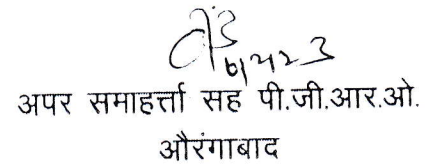 अपर समाहर्त्ता सह पी.जी.आर.ओ.
औरंगाबाद